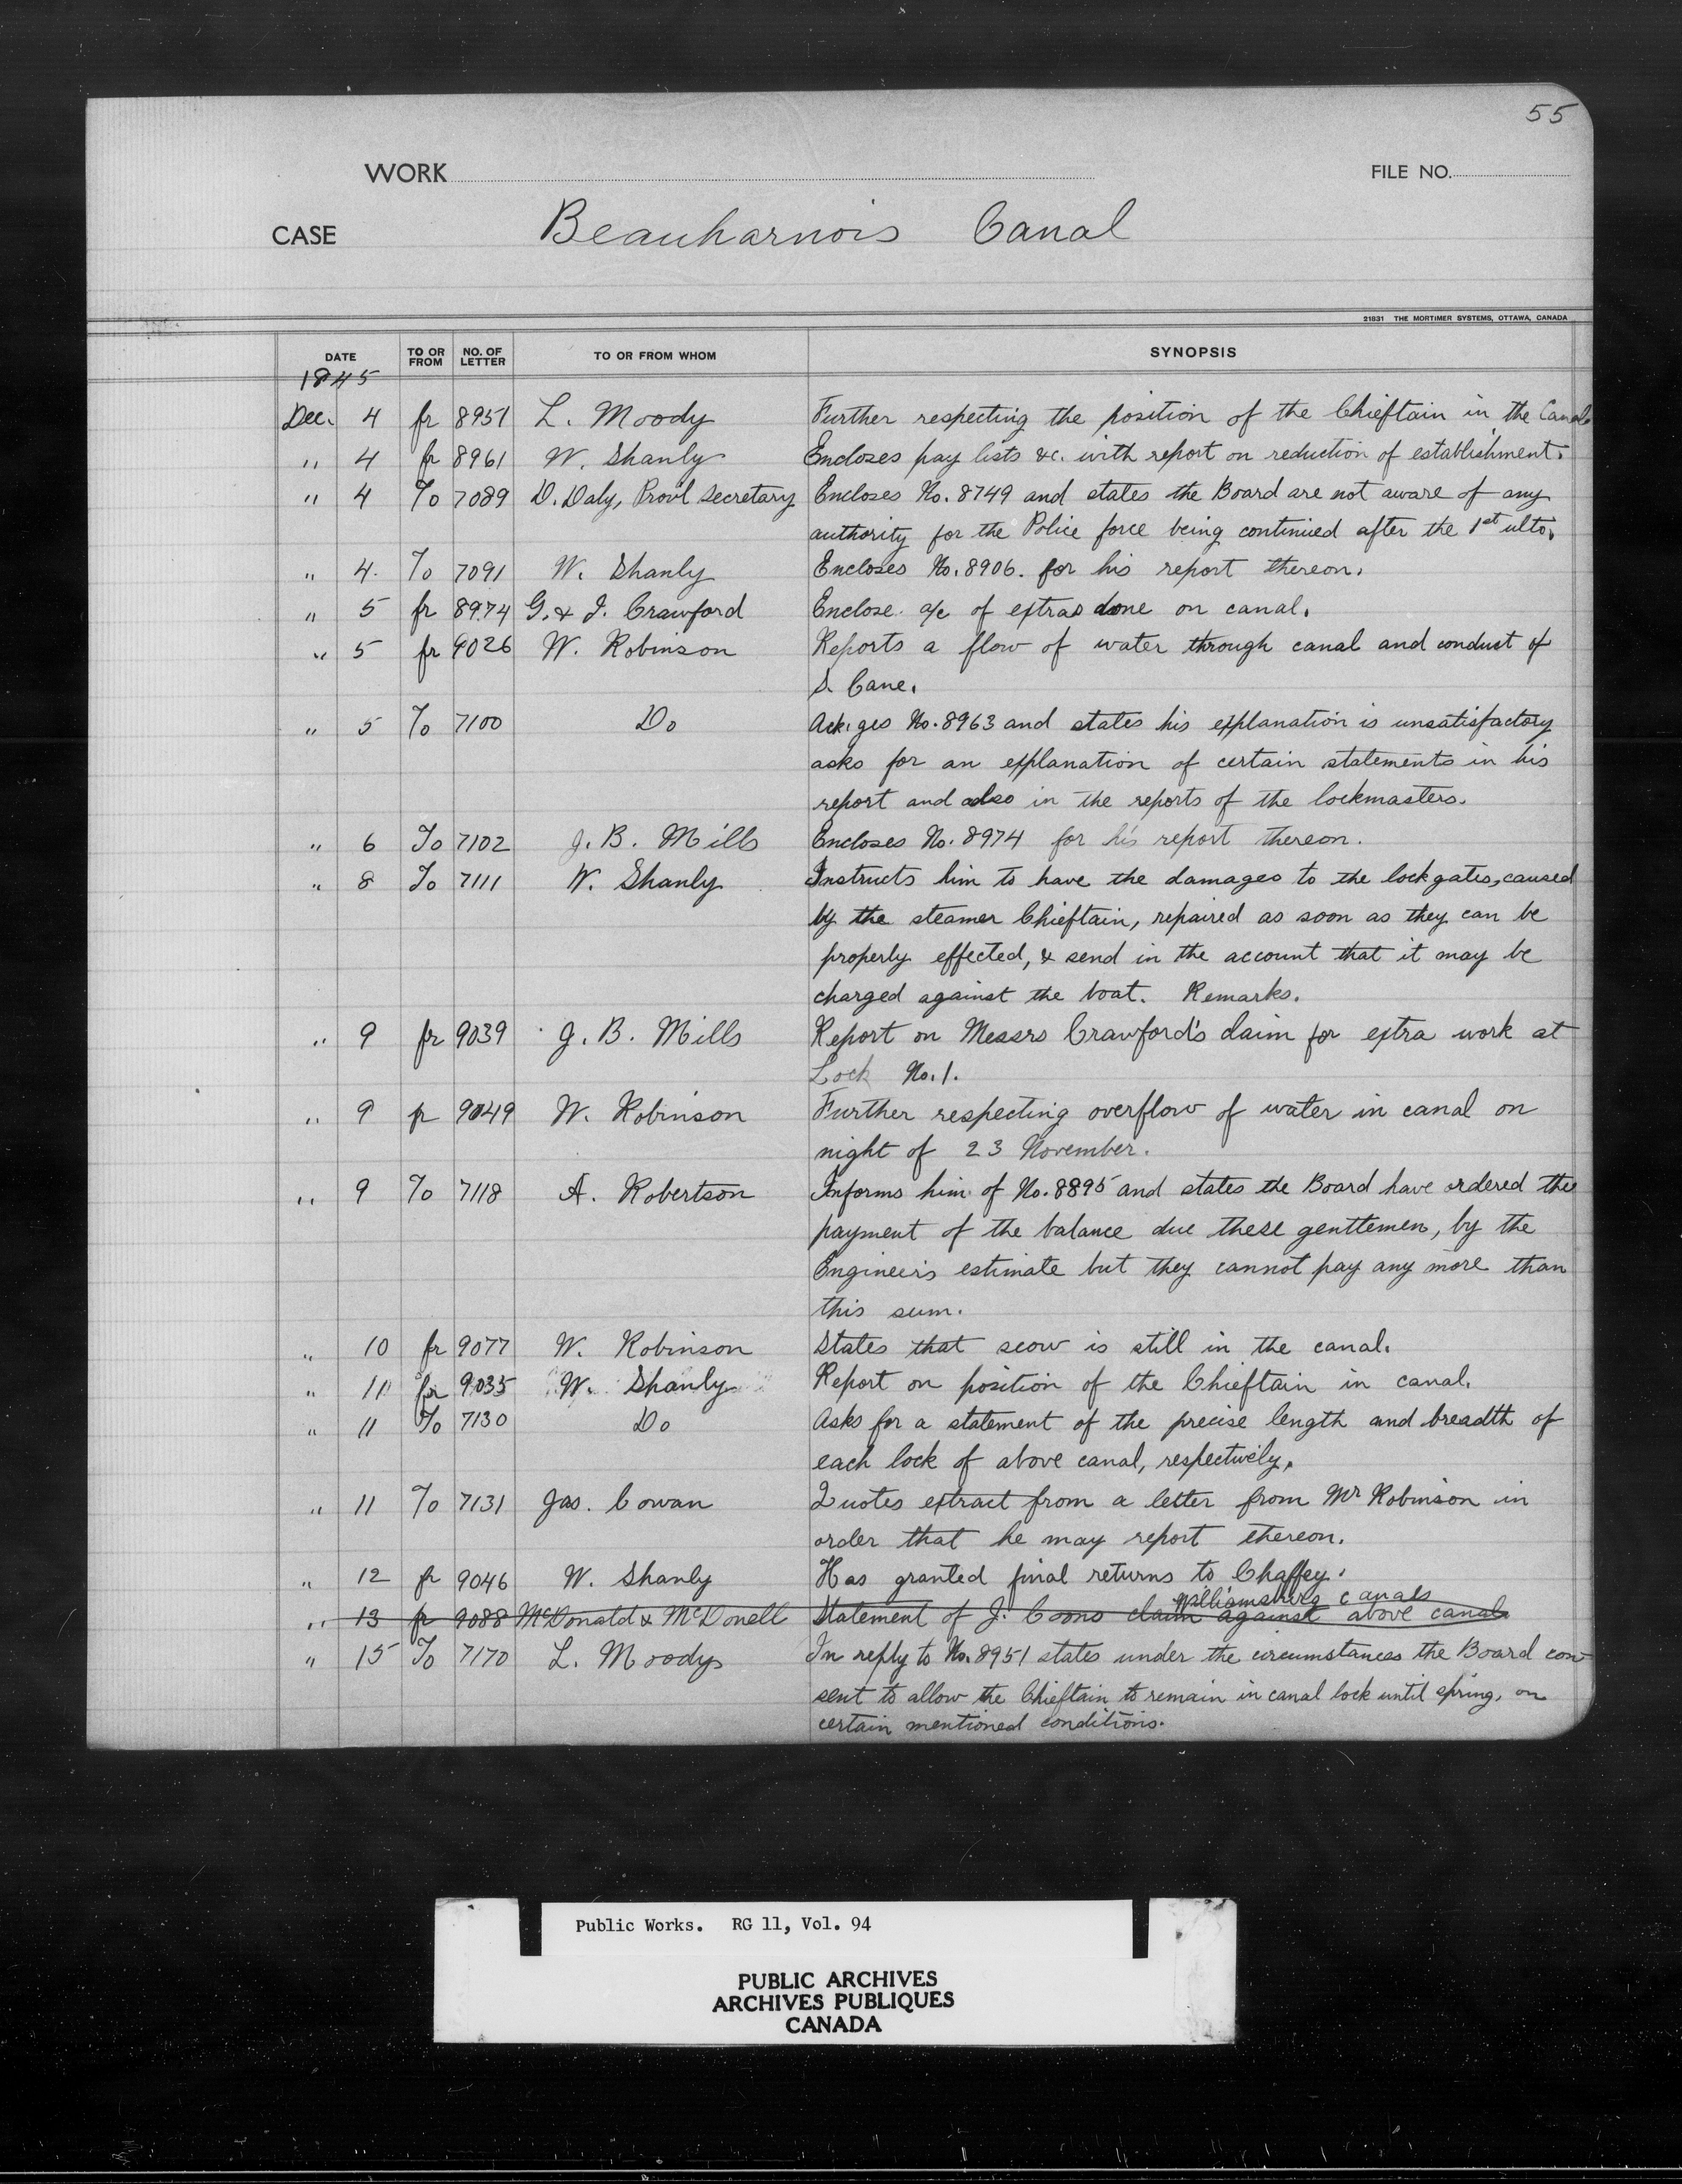 55
WORK
FILE NO.
CASE Beauharnois Canal
21831 THE MORTIMER SYSTEMS, OTTAWA, CANADA
DATE TO OR FROM NO. OF LETTER TO OR FROM WHOM SYNOPSIS
1845
Dec. 4 fr 8951 L. Moody Further respecting the position of the Chieftain in the Canal
" 4 fr 8961 W. Shanly Encloses pay lists &c. with report on reduction of establishment.
" 4 To 7089 D. Daly, Prov'l Secretary Encloses No. 8749 and states the Board are not aware of any
authority for the Police force being continued after the 1st ulto.
" 4. To 7091 W. Shanly Encloses No. 8906. for his report thereon.
" 5 fr 8974 G. & J. Crawford Enclose a/c of extras done on canal.
" 5 fr 9026 W. Robinson Reports a flow of water through canal and conduct of
S. Cane.
" 5 To 7100 Do Ack.ges No. 8963 and states his explanation is unsatisfactory
asks for an explanation of certain statements in his
report and also in the reports of the lockmasters.
" 6 To 7102 J. B. Mills Encloses No. 8974 for his report thereon.
" 8 To 7111 W. Shanly Instructs him to have the damages to the lock gates, caused
by the steamer Chieftain, repaired as soon as they can be
properly effected, & send in the account that it may be
charged against the boat. Remarks.
" 9 fr 9039 J. B. Mills Report on Messrs Crawford's claim for extra work at
Lock No. 1.
" 9 fr 9049 W. Robinson Further respecting overflow of water in canal on
night of 23 November.
" 9 To 7118 A. Robertson Informs him of No. 8895 and states the Board have ordered the
payment of the balance due these gentlemen, by the
Engineer's estimate but they cannot pay any more than
this sum.
" 10 fr 9077 W. Robinson States that scow is still in the canal.
" 11 fr 9035 W. Shanly Report on position of the Chieftain in canal.
" 11 To 7130 Do Asks for a statement of the precise length and breadth of
each lock of above canal, respectively.
" 11 To 7131 Jas. Cowan Quotes extract from a letter from Mr Robinson in
order that he may report thereon.
" 12 fr 9046 W. Shanly Has granted final returns to Chaffey.
Williamsburg canals
" 13 fr 9088 McDonald & McDonell Statement of J. Coons claim against above canal
" 15 To 7170 L. Moody In reply to No. 8951 states under the circumstances the Board con
sent to allow the Chieftain to remain in canal lock until spring, on
certain mentioned conditions.
Public Works. RG 11, Vol. 94
PUBLIC ARCHIVES
ARCHIVES PUBLIQUES
CANADA